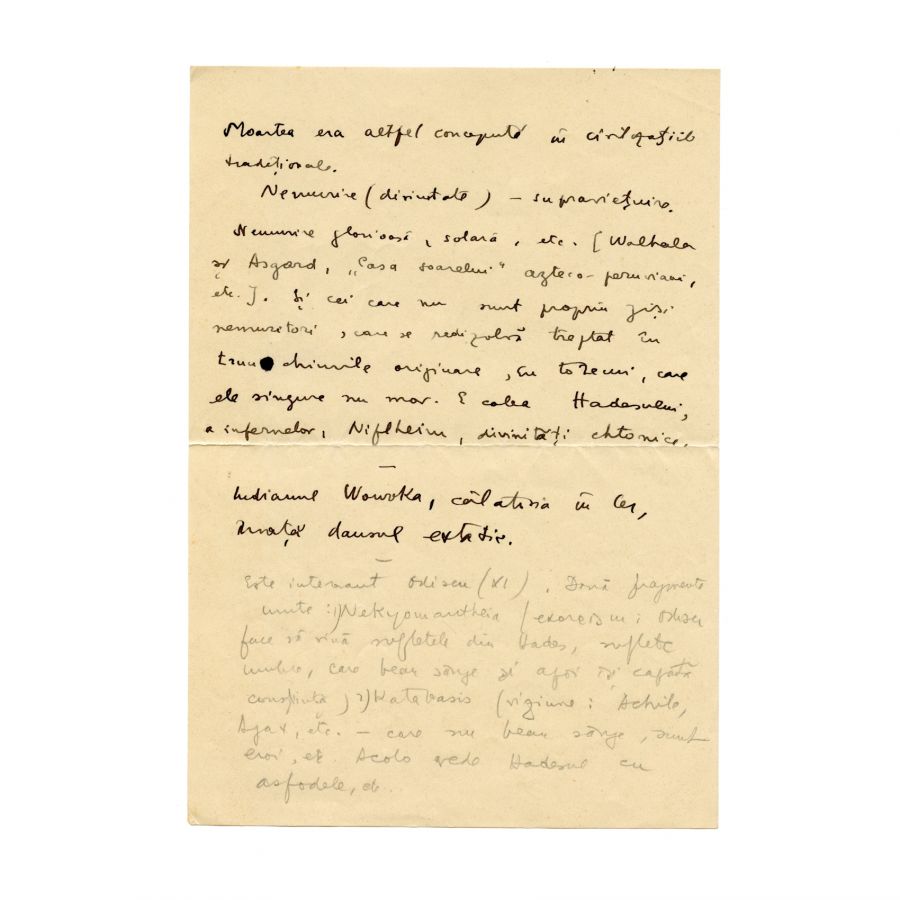 Moartea era altfel concepută în civilizațiile
tradiționale.
Nemurire (divinitate) – supraviețuire.
Nemurire glorioasă, solară, etc. [Walhala
și Asgard, „Casa soarelui" azteco-peruviani,
etc.]. Și cei care nu sunt propriu ziși
nemuritori, care se redizolvă treptat în
trunchiurile originare, în totemi, care
ele singure nu mor. E calea Hadesului,
a infernelor, Niflheim, divinități chtonice.
—
Indianul Wowoka, călătoria în cer,
învață dansul extatic.
—
Este interesant Odiseu (XI). Două fragmente
unite: 1) Nekyomantheia (exorcism: Odiseu
face să vină sufletele din Hades, suflete
umbre, care beau sânge și apoi își capătă
conștiința) 2) Katabasis (viziune: Achile,
Ajax, etc. – care nu beau sânge, sunt
eroi, etc. Acolo vede Hadesul cu
asfodele, etc.